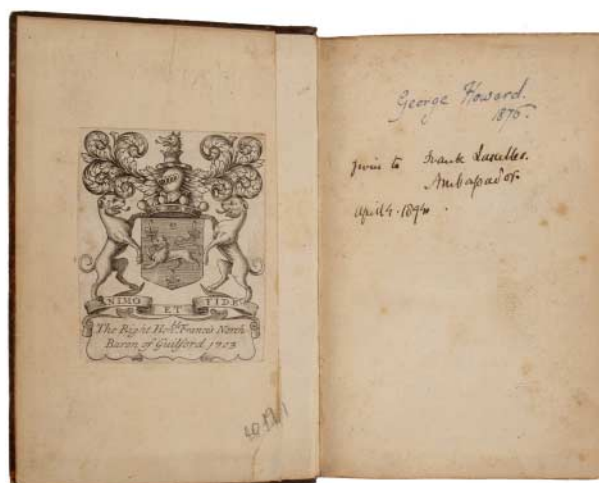 NIMO ET FIDE
The Right Hoble. Francis North
Baron of Guilford 1703
George Howard.
1875.
given to Frank Lascelles.
Ambassador.
April 4. 1894